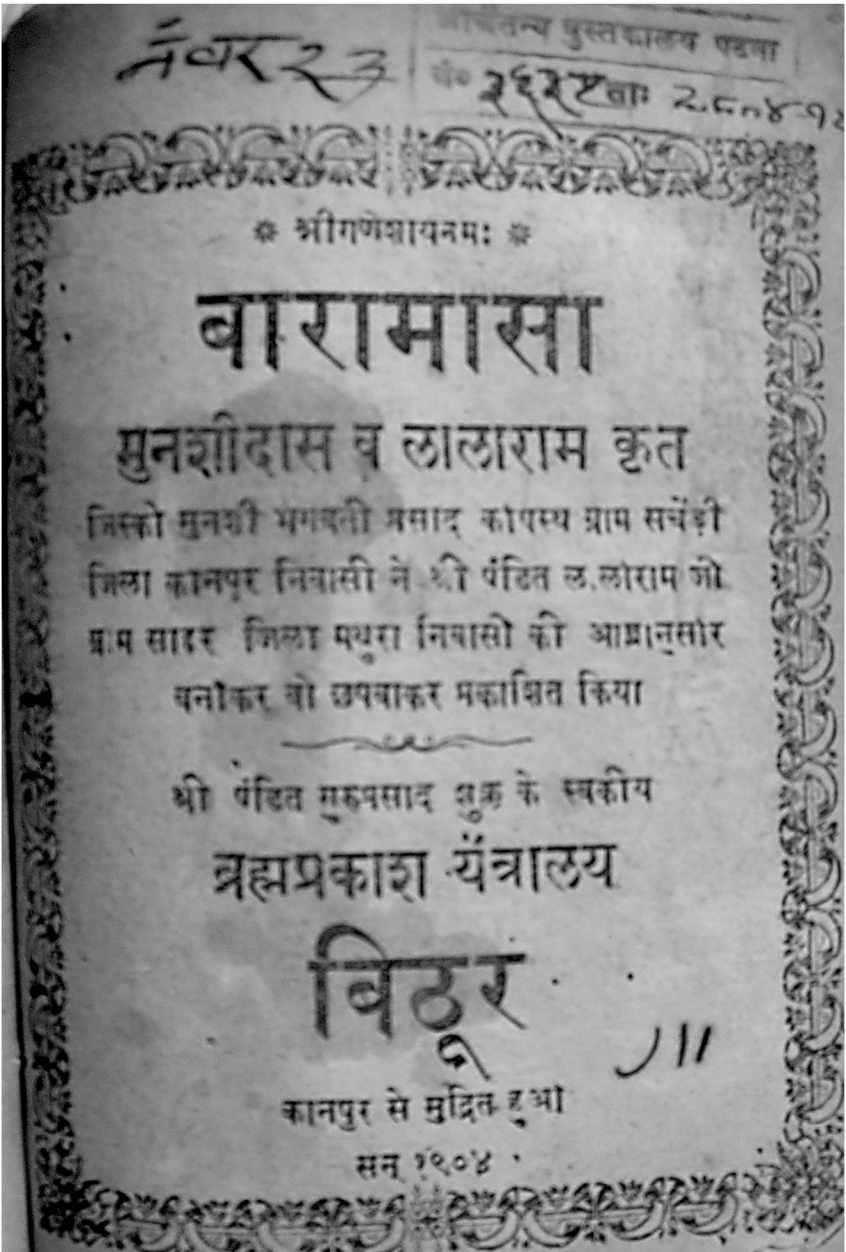 नंवर २३
श्रीचैतन्य पुस्तकालय पटना
नं० ताः
❊ श्रीगणेशायनमः ❊
बारामासा
मुनशीदास व लालाराम कृत
जिस्को मुनशी भगवती प्रसाद कायस्थ ग्राम सचेंड़ी
जिला कानपुर निवासी ने श्री पंडित ललाराम जी
ग्राम सादर जिला मथुरा निवासी की आज्ञानुसार
वनाकर वो छपवाकर प्रकाशित किया
श्री पंडित गुरुप्रसाद शुक्ल के स्वकीय
ब्रह्मप्रकाश यंत्रालय
बिठूर
कानपुर से मुद्रित हुआ
सन् १९०४